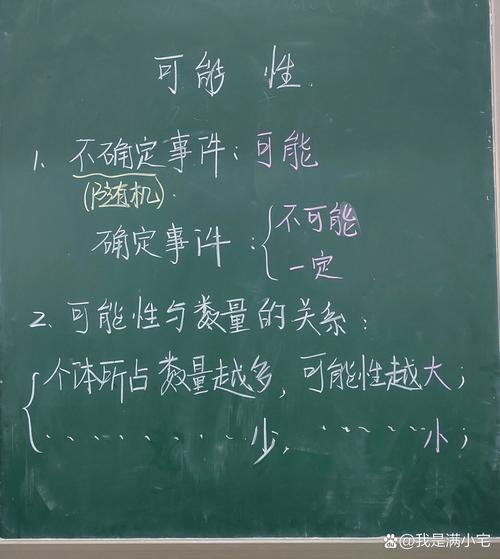 可能性
1、不确定事件：可能
(随机)
确定事件：{不可能
一定
2、可能性与数量的关系：
{个体所占数量越多，可能性越大；
..........少，........小；
@我是满小宅